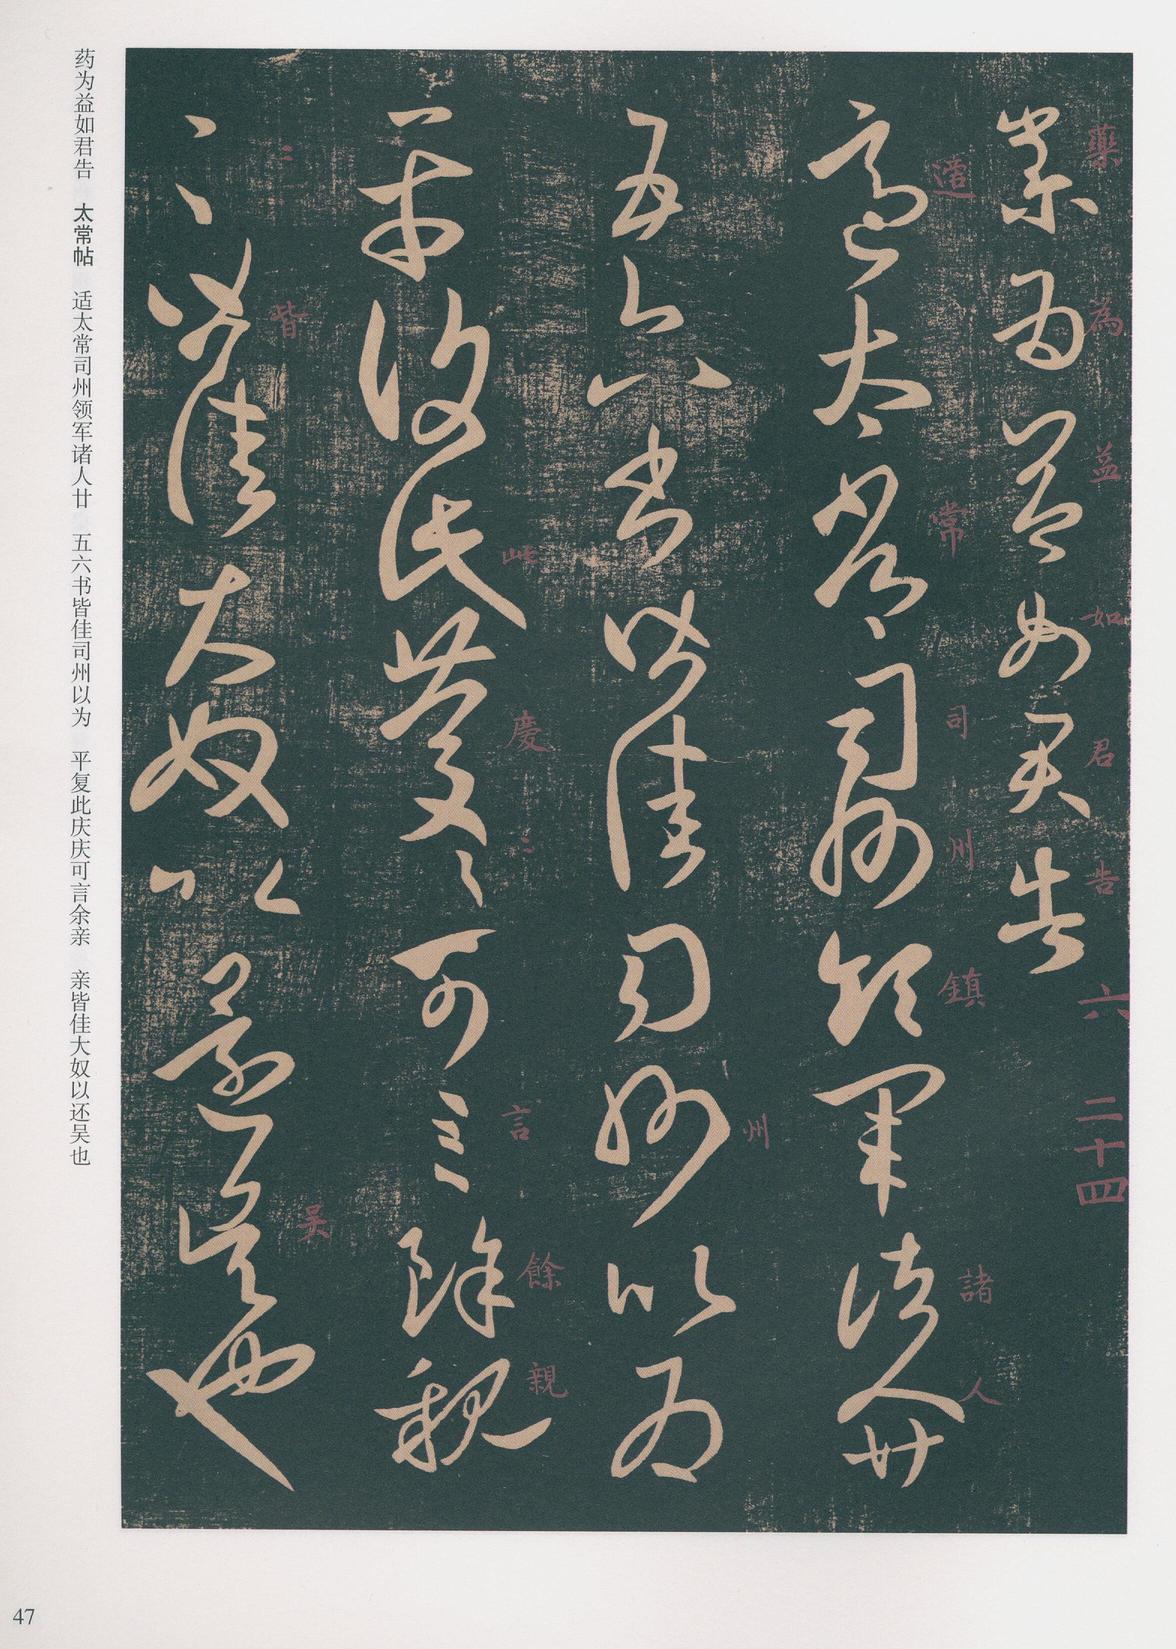 藥為益如君告
適太常司州領軍諸人廿
五六書皆佳司州以為
平復此慶慶可言餘親
〻皆佳大奴以還吳也
藥
為
益
如
君
告
六
二十四
適
常
司
州
鎮
諸
人
州
此
慶
〻
言
餘
親
〻
皆
吴
药为益如君告 太常帖 适太常司州领军诸人廿 五六书皆佳司州以为 平复此庆庆可言余亲 亲皆佳大奴以还吴也
47